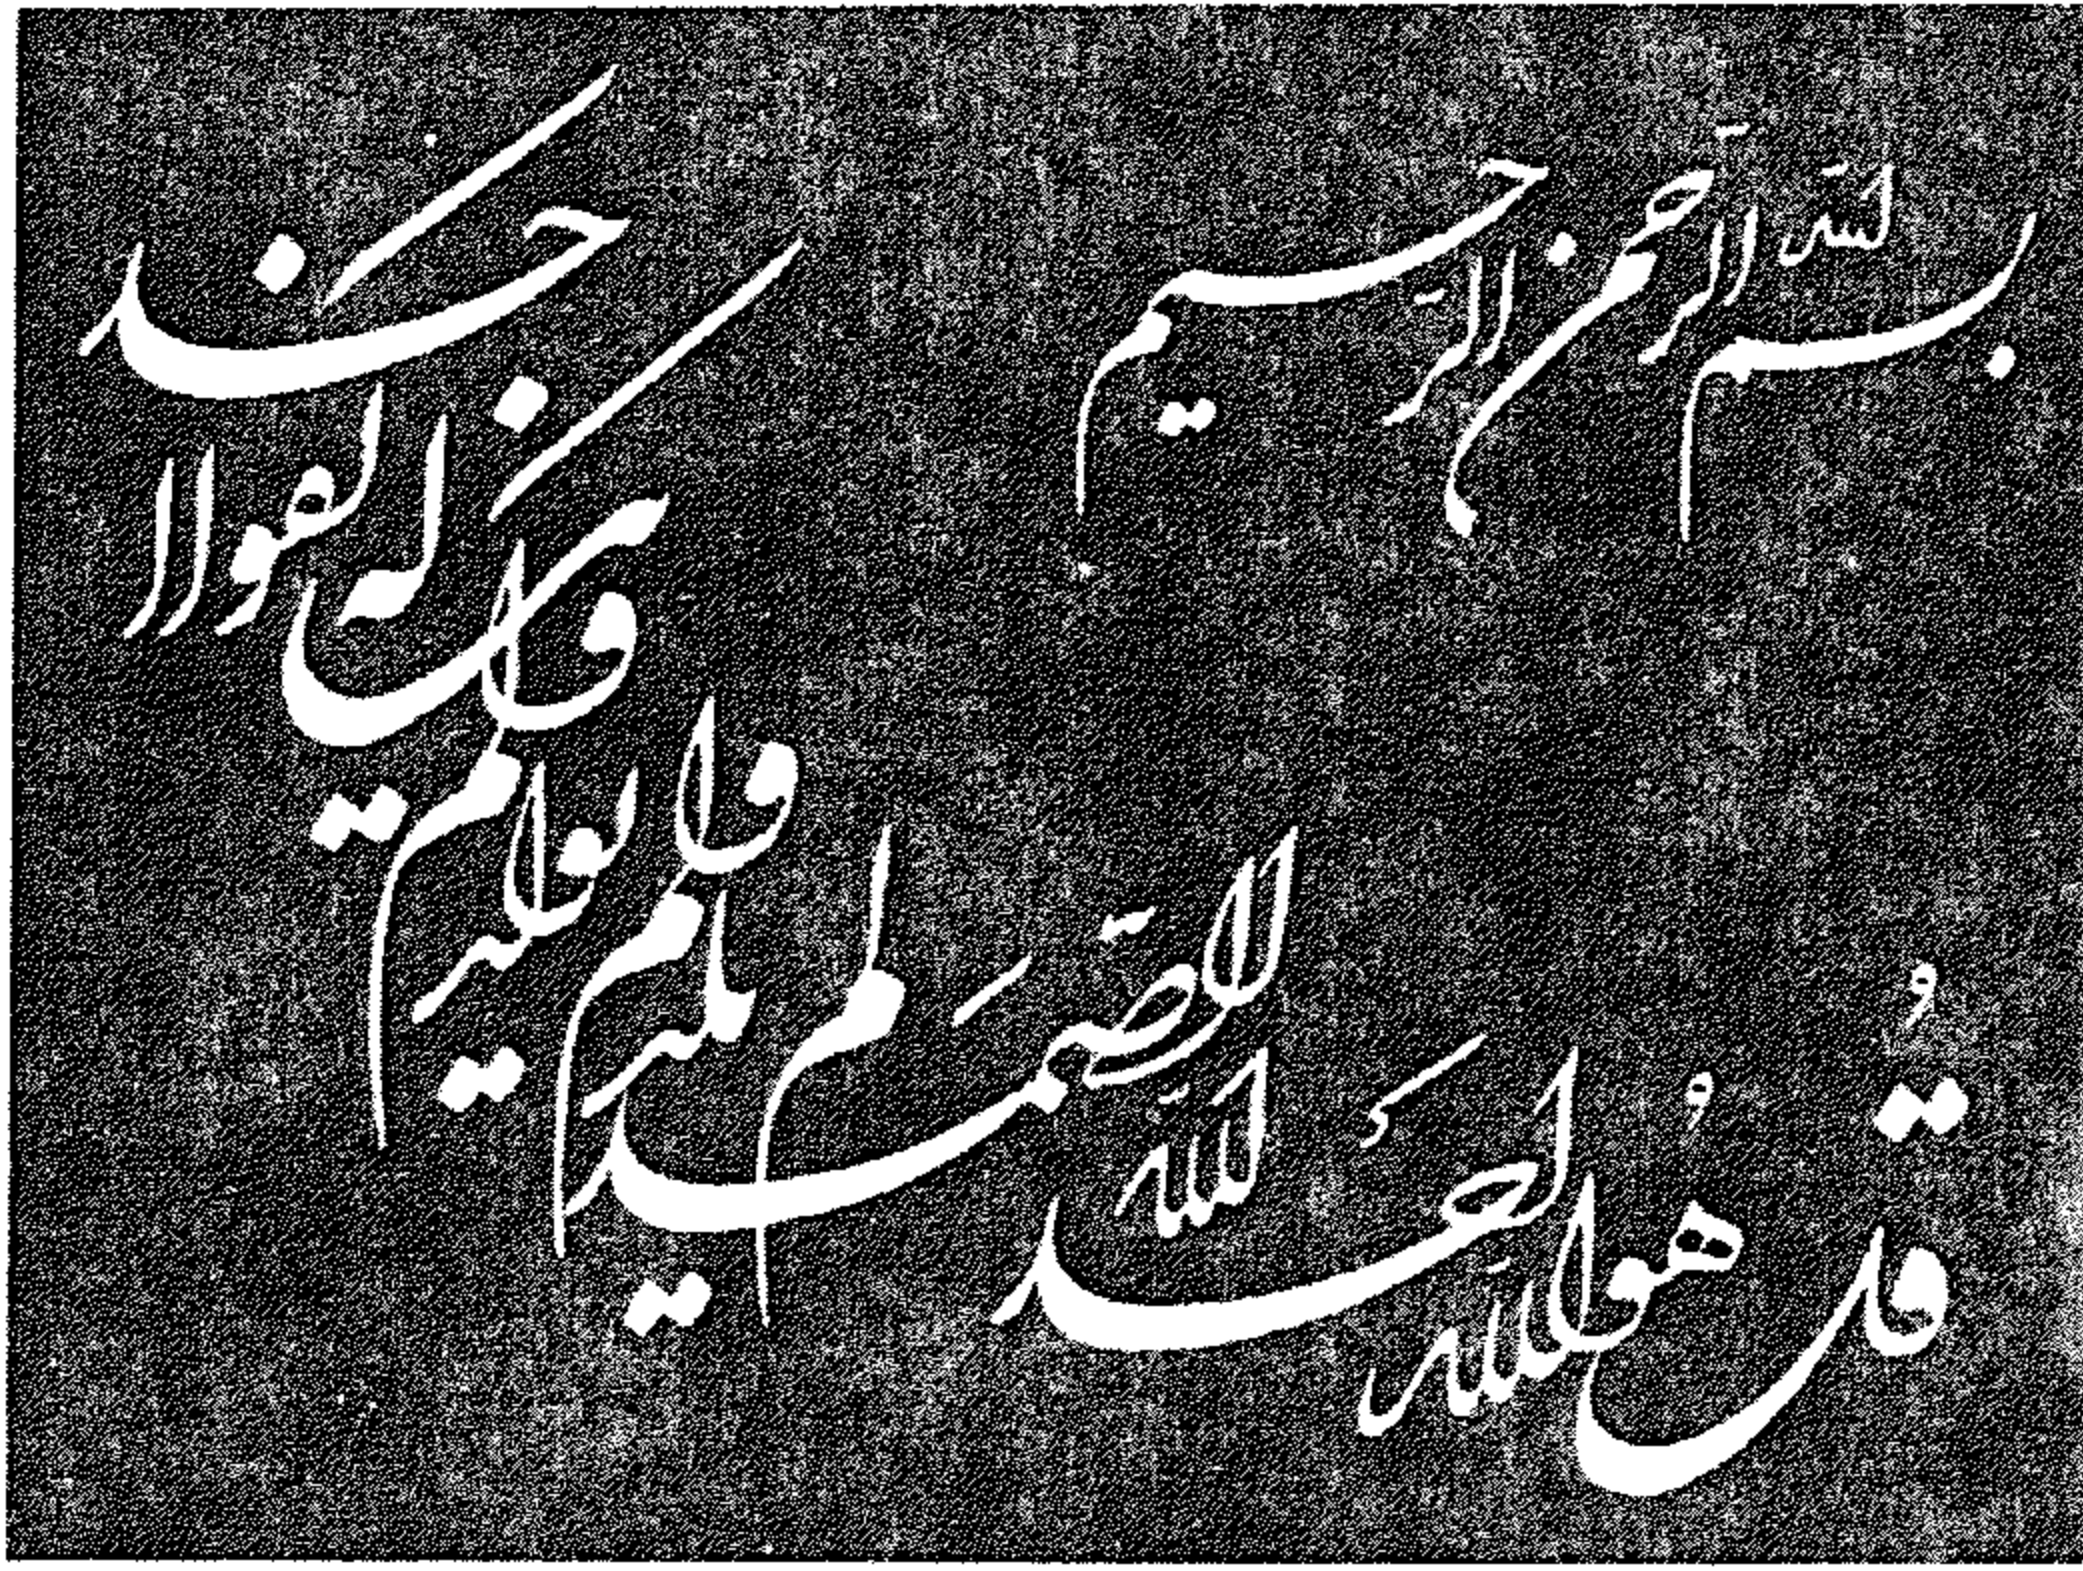 بسم الله الرحمن الرحيم
قل هو الله احد
الله الصمد
لم يلد
و لم يولد
و لم يكن
له كفوا ا حد